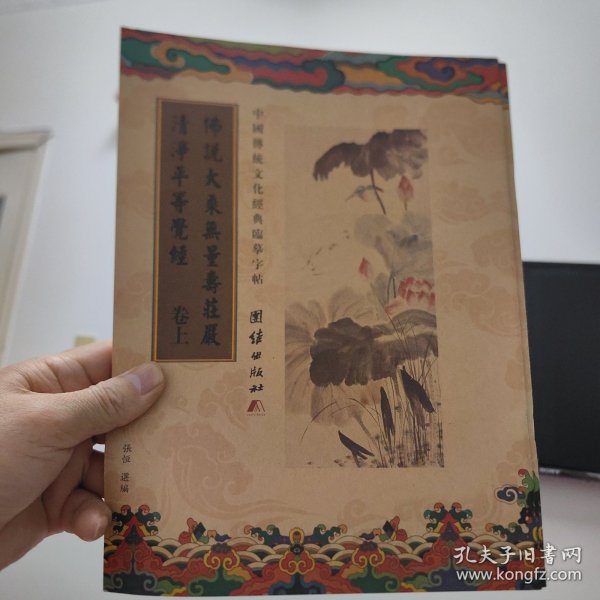 佛説大乘無量壽莊嚴
清淨平等覺經 卷上
中國傳統文化經典臨摹字帖
团结出版社
張恒 選編
孔夫子旧书网
www.kongfz.com